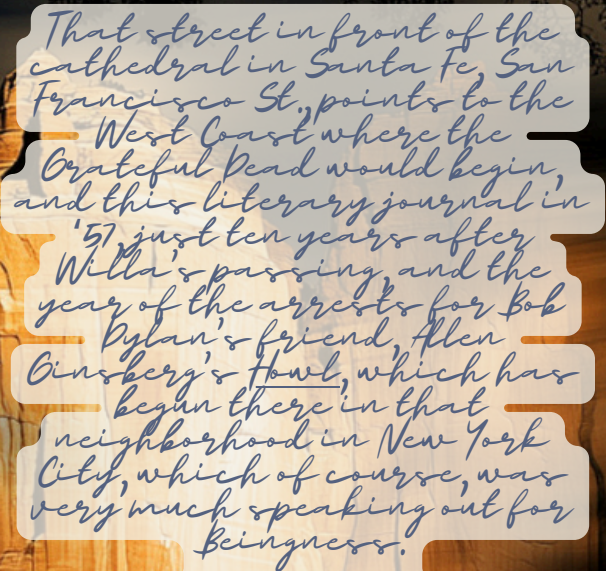 That street in front of the
cathedral in Santa Fe, San
Francisco St., points to the
West Coast where the
Grateful Dead would begin,
and this literary journal in
'57, just ten years after
Willa's passing, and the
year of the arrests for Bob
Dylan's friend, Allen
Ginsberg's Howl, which has
begun there in that
neighborhood in New York
City, which of course, was
very much speaking out for
Beingness.